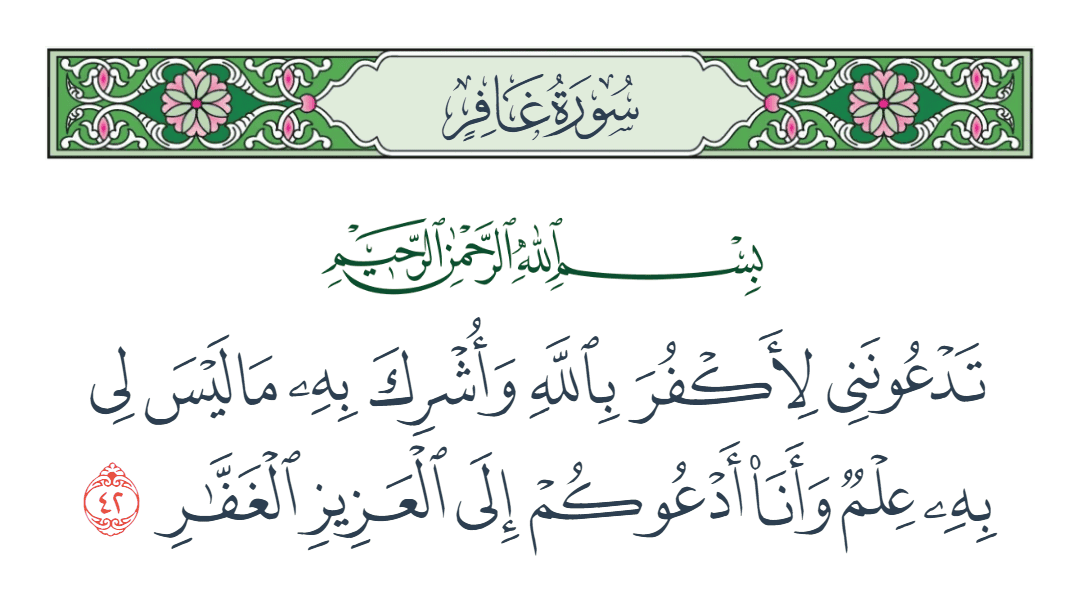 سُورَةُ غَافِرٍ
بِسْمِ ٱللَّهِ ٱلرَّحْمَٰنِ ٱلرَّحِيمِ
تَدْعُونَنِى لِأَكْفُرَ بِٱللَّهِ وَأُشْرِكَ بِهِۦ مَا لَيْسَ لِى
بِهِۦ عِلْمٌۭ وَأَنَا۠ أَدْعُوكُمْ إِلَى ٱلْعَزِيزِ ٱلْغَفَّٰرِ ٤٢